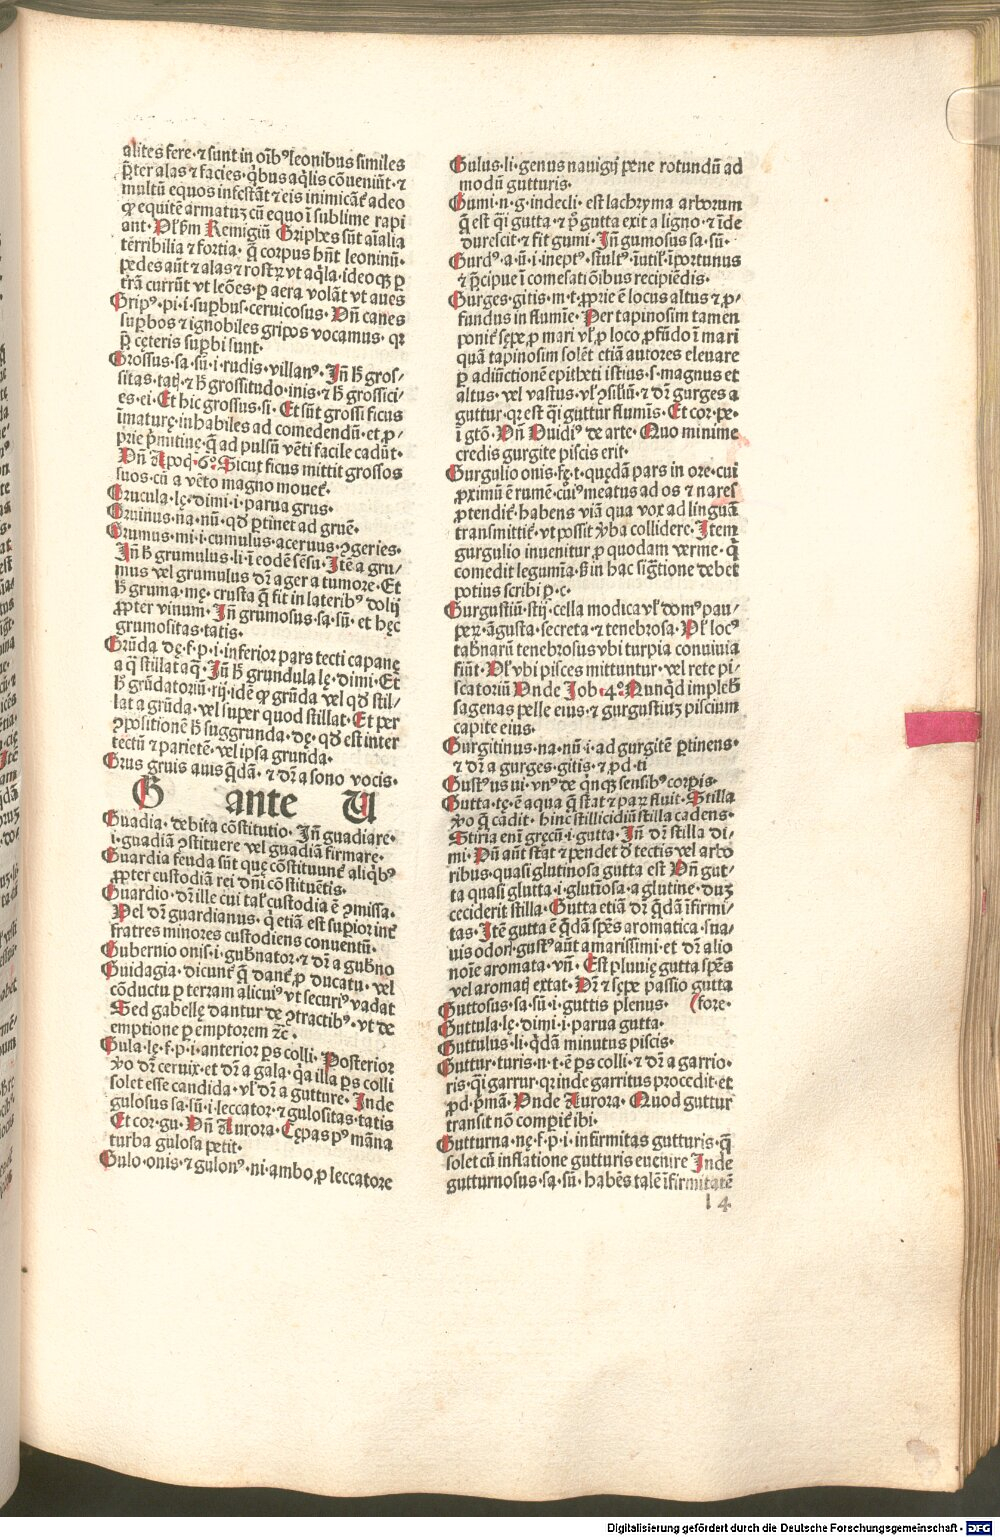 alites fere· ⁊ sunt in oībꝰ leonibus similes
p̄ter alas ⁊ facies· q̇bus aq̇lis cōueniūt· ⁊
multū equos infestāt ⁊ eis inimicāt᷑ adeo
ꝙ equitē armatuꝫ cū equo ī sublime rapi
ant· Vl̓ ẜm Remigiū Griphes sūt aīalia
terribilia ⁊ fortia· q̄ corpus hn̄t leoninū·
pedes aūt ⁊ alas ⁊ rostꝝ vt aq̇la· ideoqꝫ ꝑ
trā currūt vt leōes· ꝑ aera volāt vt aues
Gripꝰ· pi· i· suꝑbus· ceruicosus· Vn̄ canes
suꝑbos ⁊ ignobiles gripos vocamus· qꝛ
p̄ cęteris suꝑbi sunt·
Grossus· sa· sū· i· rudis· villanꝰ· Jn̄ h̓ gros/
sitas· tatꝭ· ⁊ h̓ grossitudo· inis· ⁊ h̓ grossici/
es· ei· Et hic grossus· si· Et sūt grossi ficus
īmaturę· inhabiles ad comedendū· et ꝓ/
prie p̄mitiue· q̄ ad pulsū vēti facile cadūt·
Vn̄ Apoc· 6°· Sicut ficus mittit grossos
suos· cū a vēto magno mouet᷑·
Grucula· lę· dimi· i· parua grus·
Gruinus· na· nū· qd̓ ꝑtinet ad gruē·
Grumus· mi· i· cumulus· aceruus· ꝯgeries·
Jn̄ h̓ grumulus· li· ī eodē sēsu· Jtē a gru/
mus vel grumulus dr̄ ager a tumore· Et
h̓ gruma· mę· crusta q̄ fit in lateribꝰ dolij
ꝓpter vinum· Jn̄ grumosus· sa· sū· et hęc
grumositas· tatis·
Grūda· dę· f· p· i· inferior pars tecti capanę
a q̇ stillat aq̄· Jn̄ h̓ grundula lę· dimi· Et
h̓ grūdatoriū· rij· idē ꝙ grūda vel qd̓ stil/
lat a grūda· vel super quod stillat· Et per
ꝯpositionē h̓ suggrunda· dę· qd̓ est inter
tectū ⁊ parietē· vel ipsa grunda·
Grus gruis auis q̄dā· ⁊ dr̄ a sono vocis·
G ante U
Guadia· debita cōstitutio· Jn̄ guadiare·
i· guadiā ꝯstituere vel guadiā firmare·
Guardia feuda sūt quę cōstituunt᷑ aliq̇bꝰ
ꝓpter custodiā rei dn̄i cōstituētis·
Guardio· dr̄ ille cui tal᷑ custodia ē ꝯmissa·
Vel dr̄ guardianus· q̇ etiā est suꝑior int᷑
fratres minores custodiens conuentū·
Gubernio onis· i· gub̓nator· ⁊ dr̄ a gub̓no
Guidagia· dicunt᷑ q̄ dant᷑ ꝓ ducatu· vel
cōductu ꝑ terram alicuiꝰ vt securiꝰ vadat
Sed gabellę dantur de ꝯtractibꝰ· vt de
emptione ꝑ emptorem ⁊c̄·
Gula· lę· f· p· i· anterior ꝑs colli· Posterior
ꝟo dr̄ ceruix· et dr̄ a gala· q̇a illa ꝑs colli
solet esse candida· vl̓ dr̄ a gutture· Jnde
gulosus sa· sū· i· leccator· ⁊ gulositas· tatis
Et cor· gu· Vn̄ Aurora· Cępas pꝰ māna
turba gulosa petit·
Gulo· onis· ⁊ gulonꝰ· ni· ambo ꝓ leccatore
Gulus· li· genus nauigij pene rotundū ad
modū gutturis·
Gumi· n· g· indecli· est lachryma arborum
q̄ est q̇i gutta· ⁊ p̄ gutta exit a ligno· ⁊ īde
durescit· ⁊ fit gumi· Jn̄ gumosus sa· sū·
Gurdꝰ· a· ū· i· ineptꝰ· stultꝰ· īutil᷑· īportunus
⁊ p̄cipue ī comesatiōibus recipiēdis·
Gurges· gitis· m· t· ꝓprie ē locus altus ⁊ ꝓ/
fundus in flumīe· Per tapinosim tamen
ponit᷑ sępe ꝓ mari vl̓ ꝓ loco ꝓfūdo ī mari
quā tapinosim solēt etiā autores eleuare
ꝑ adiūctionē epitheti istius· s· magnus et
altus· vel vastus· vl̓ ꝯsiliū· ⁊ dr̄ gurges a
guttur· qꝛ est q̇i guttur flumīs· Et cor· pe·
ī gtō· Vn̄ Ouidiꝰ de arte· Quo minime
credis gurgite piscis erit·
Gurgulio onis· fę· t· quędā pars in ore· cui
ꝓximū ē rumē· cuiꝰ meatus ad os ⁊ nares
ꝓtendit᷑· habens viā qua vox ad linguā
transmittit᷑· vt possit ꝟba collidere· Jtem
gurgulio inuenitur ꝓ quodam verme· q̇
comedit legumīa· ß in hac sig̅tione debet
potius scribi ꝑ· c·
Gurgustiū· stij· cella modica vl̓ domꝰ pau/
peꝝ· āgusta· secreta· ⁊ tenebrosa· Vl̓ locꝰ
tab̓narū tenebrosus vbi turpia conuiuia
fiūt· Vl̓ vbi pisces mittuntur· vel rete pi/
scatoriū Unde Job· 4°· Nunq̇d impleb̓
sagenas pelle eius· ⁊ gurgustiuꝫ piscium
capite eius·
Gurgitinus· na· nū· i· ad gurgitē ꝑtinens·
⁊ dr̄ a gurges· gitis· ⁊ ꝓd· ti
Gustꝰ us ui· vnꝰ de q̇nqꝫ sensibꝰ corꝑis·
Gutta· tę· ē aqua q̄ stat ⁊ paꝝ fluit· Stilla
ꝟo q̄ cādit· hinc stillicidiū stilla cadens·
Stiria eni᷑ grecū· i· gutta· Jn̄ dr̄ stilla di·
mi· Vn̄ aūt stat ⁊ pendet d̓ tectis vel arbo
ribus· quasi glutinosa gutta est Vn̄ gut·
ta quasi glutta· i· glutīosa· a glutine· duꝫ
ceciderit stilla· Gutta etiā dr̄ q̄dā īfirmi/
tas· Jtē gutta ē q̄dā spēs aromatica· sua/
uis odorꝭ· gustꝰ aūt amarissimi· et dr̄ alio
noīe aromata· vn̄· Est pluuię gutta spēs
vel aromatꝭ extat· Dr̄ ⁊ sępe passio gutta
Guttosus· sa· sū· i· guttis plenus· (fore·
Guttula· lę· dimi· i· parua gutta·
Guttulus· li· q̇dā minutus piscis·
Guttur· turis· n· t· ē ꝑs colli· ⁊ dr̄ a garrio·
ris· q̇i garrur· qꝛ inde garritus procedit· et
ꝓd· p̄mā· Vnde Aurora· Quod guttur
transit nō comꝑit᷑ ibi·
Gutturna· nę· f· p· i· infirmitas gutturis· q̄
solet cū inflatione gutturis euenire Jnde
gutturnosus· sa· sū· habēs talē īfirmitatē
l 4
Digitalisierung gefördert durch die Deutsche Forschungsgemeinschaft - DFG